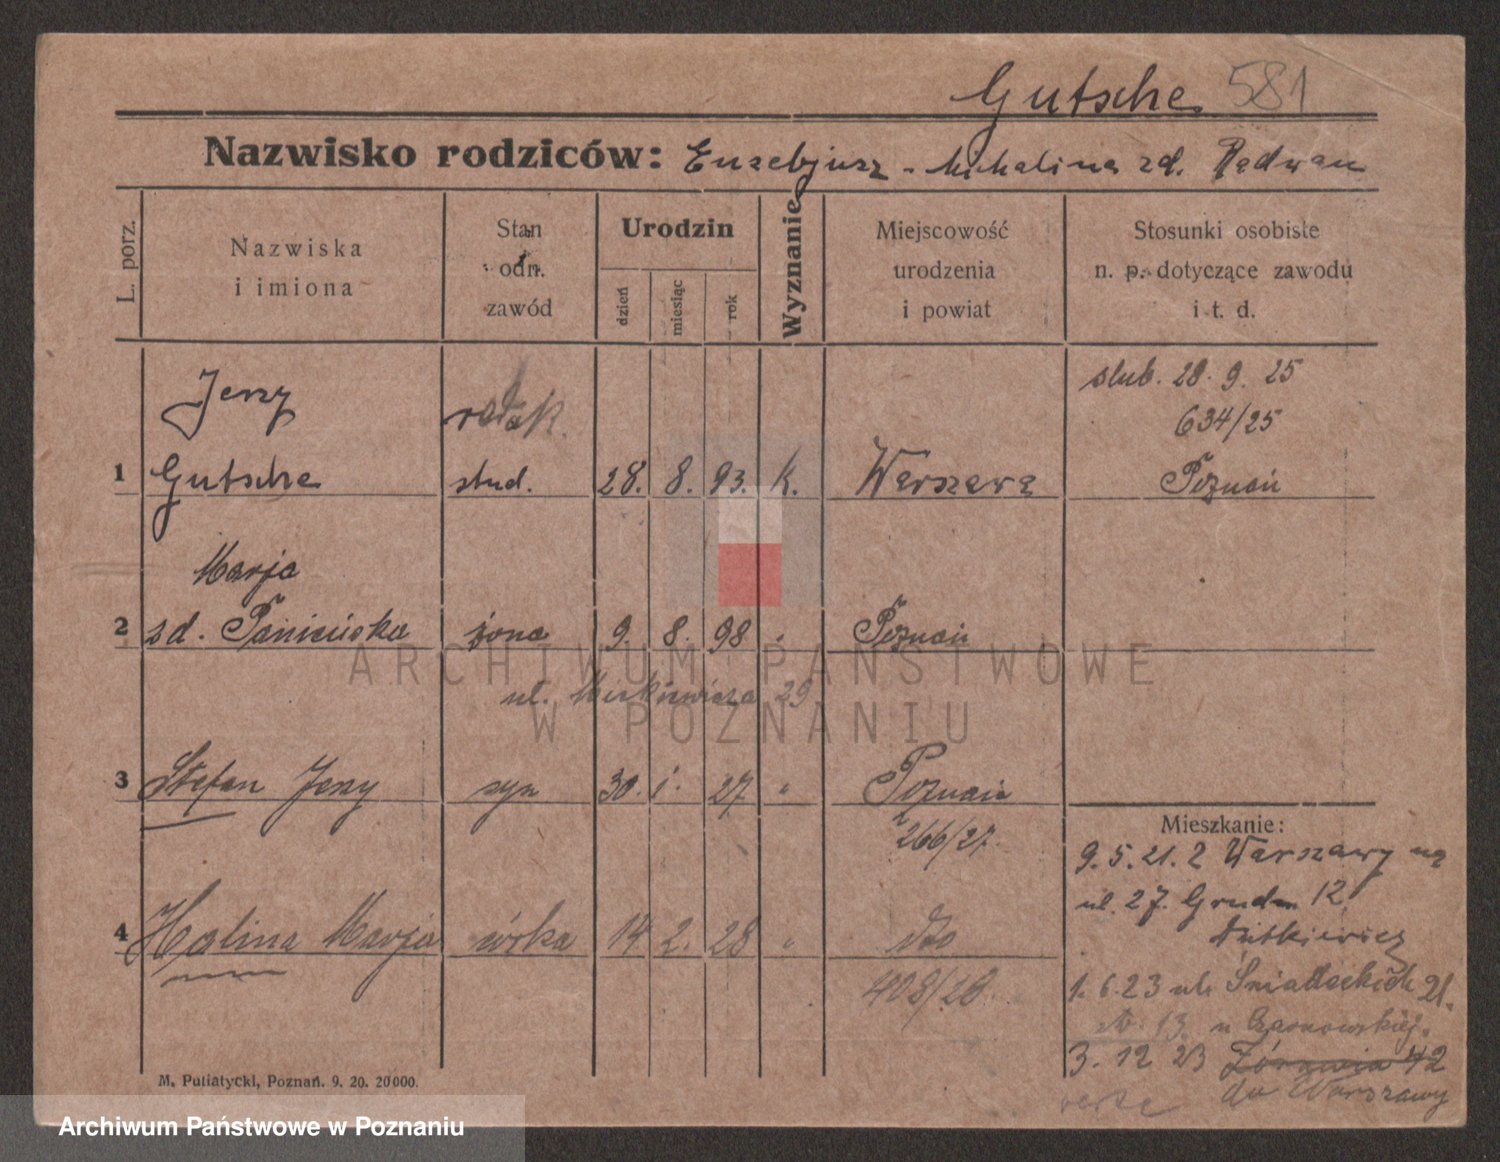 Gutsche 581
Nazwisko rodziców: Euzebjusz - Michalina zd. Rędwan
L. porz.
Nazwiska
i imiona
Stan
odn.
zawód
Urodzin
dzień
miesiąc
rok
Wyznanie
Miejscowość
urodzenia
i powiat
Stosunki osobiste
n. p. dotyczące zawodu
i t. d.
Jerzy
ślub. 28. 9. 25
634/25
1 Gutsche stud. 28. 8. 93. K. Warszawa Poznań
Marja
2 zd. żona 9. 8. 98 " Poznań
ul. 29
3 Stefan Jerzy syn 30. 1. 27. " Poznań
266/27.
Mieszkanie:
9. 5. 21. z Warszawy na
ul. 27. Grudn 12.
4 Halina Marja córka 14 2. 28 " dto
408/28.
1. 6. 23 ul. Śniadeckich 21.
3. 12 23 Żórawia 42
do Warszawy
verte
M. Putiatycki, Poznań. 9. 20. 20000.
ARCHIWUM PAŃSTWOWE
W POZNANIU
Archiwum Państwowe w Poznaniu